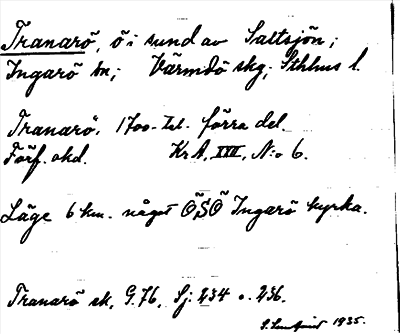 Tranarö, ö i sund av Saltsjön;
Ingarö sn; Värmdö skg; Sthlms l.
Tranarö: 1700-tal. förra del.
Förf. okd. KrA, XXII, N:o 6.
Läge 6 km. något ÖSÖ Ingarö kyrka.
Tranarö sk. G.76, Sj: 234 o. 236.
1935.